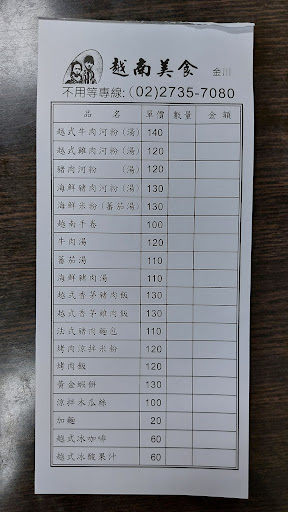 越南美食 金川
不用等專線:(02)2735-7080
品 名 單價 數量 金額
越式牛肉河粉(湯) 140
越式雞肉河粉(湯) 120
豬肉河粉 (湯) 120
海鮮豬肉河粉(湯) 130
海鮮米粉(蕃茄湯) 130
越南手卷 100
牛肉湯 120
蕃茄湯 110
海鮮豬肉湯 110
越式香茅豬肉飯 130
越式香茅雞肉飯 130
法式豬肉麵包 110
烤肉涼拌米粉 120
烤肉飯 120
黃金蝦餅 130
涼拌木瓜絲 100
加麵 20
越式冰咖啡 60
越式冰酸果汁 60